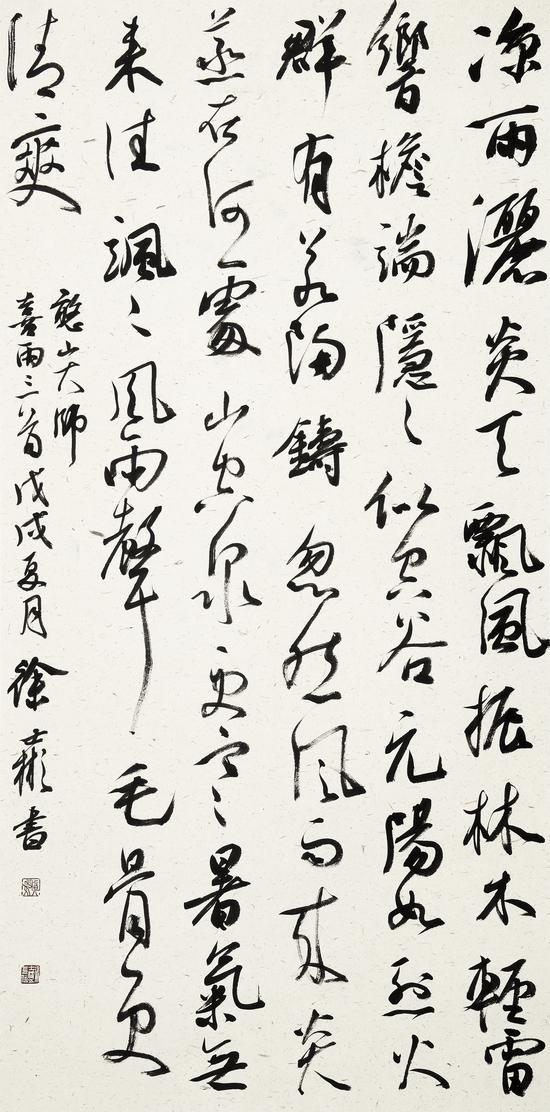 凉雨灑炎天飄風振林木輕雷
響檐端隱々似空谷元陽如烈火
群有若陶鑄忽然風雨來炎
蒸在何處山空泉更寒暑氣無
來往颯々風雨聲毛骨更
清爽
憨山大師
喜雨三首戊戌夏月徐彬書